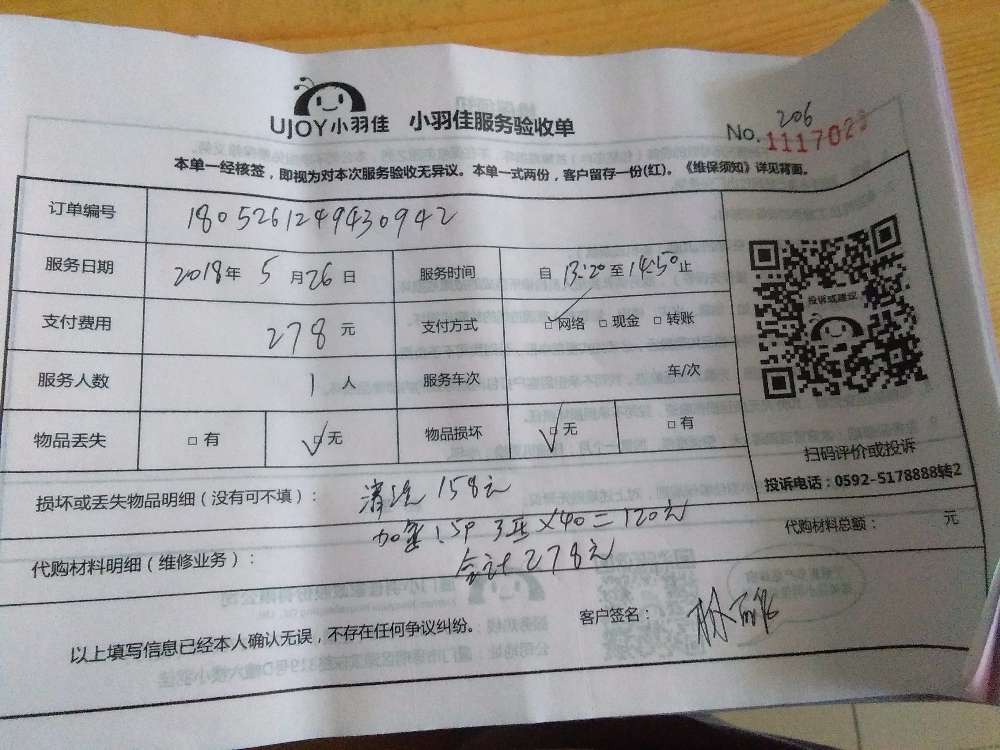 UJOY小羽佳 小羽佳服务验收单
No. 206
1117023
本单一经核签，即视为对本次服务验收无异议。本单一式两份，客户留存一份(红)。《维保须知》详见背面。
订单编号 1805261249430942
服务日期 2018年 5 月 26 日 服务时间 自 13:20 至 14:50 止
支付费用 278 元 支付方式 ☑网络 □现金 □转账
服务人数 1 人 服务车次 车/次
物品丢失 □有 ☑无 物品损坏 ☑无 □有
投诉或建议
扫码评价或投诉
投诉电话：0592-5178888转2
损坏或丢失物品明细（没有可不填）： 清洗 158元
加雪 1.5P 3 ×40=120元
代购材料明细（维修业务）： 合计278元
代购材料总额： 元
以上填写信息已经本人确认无误，不存在任何争议纠纷。 客户签名： 林